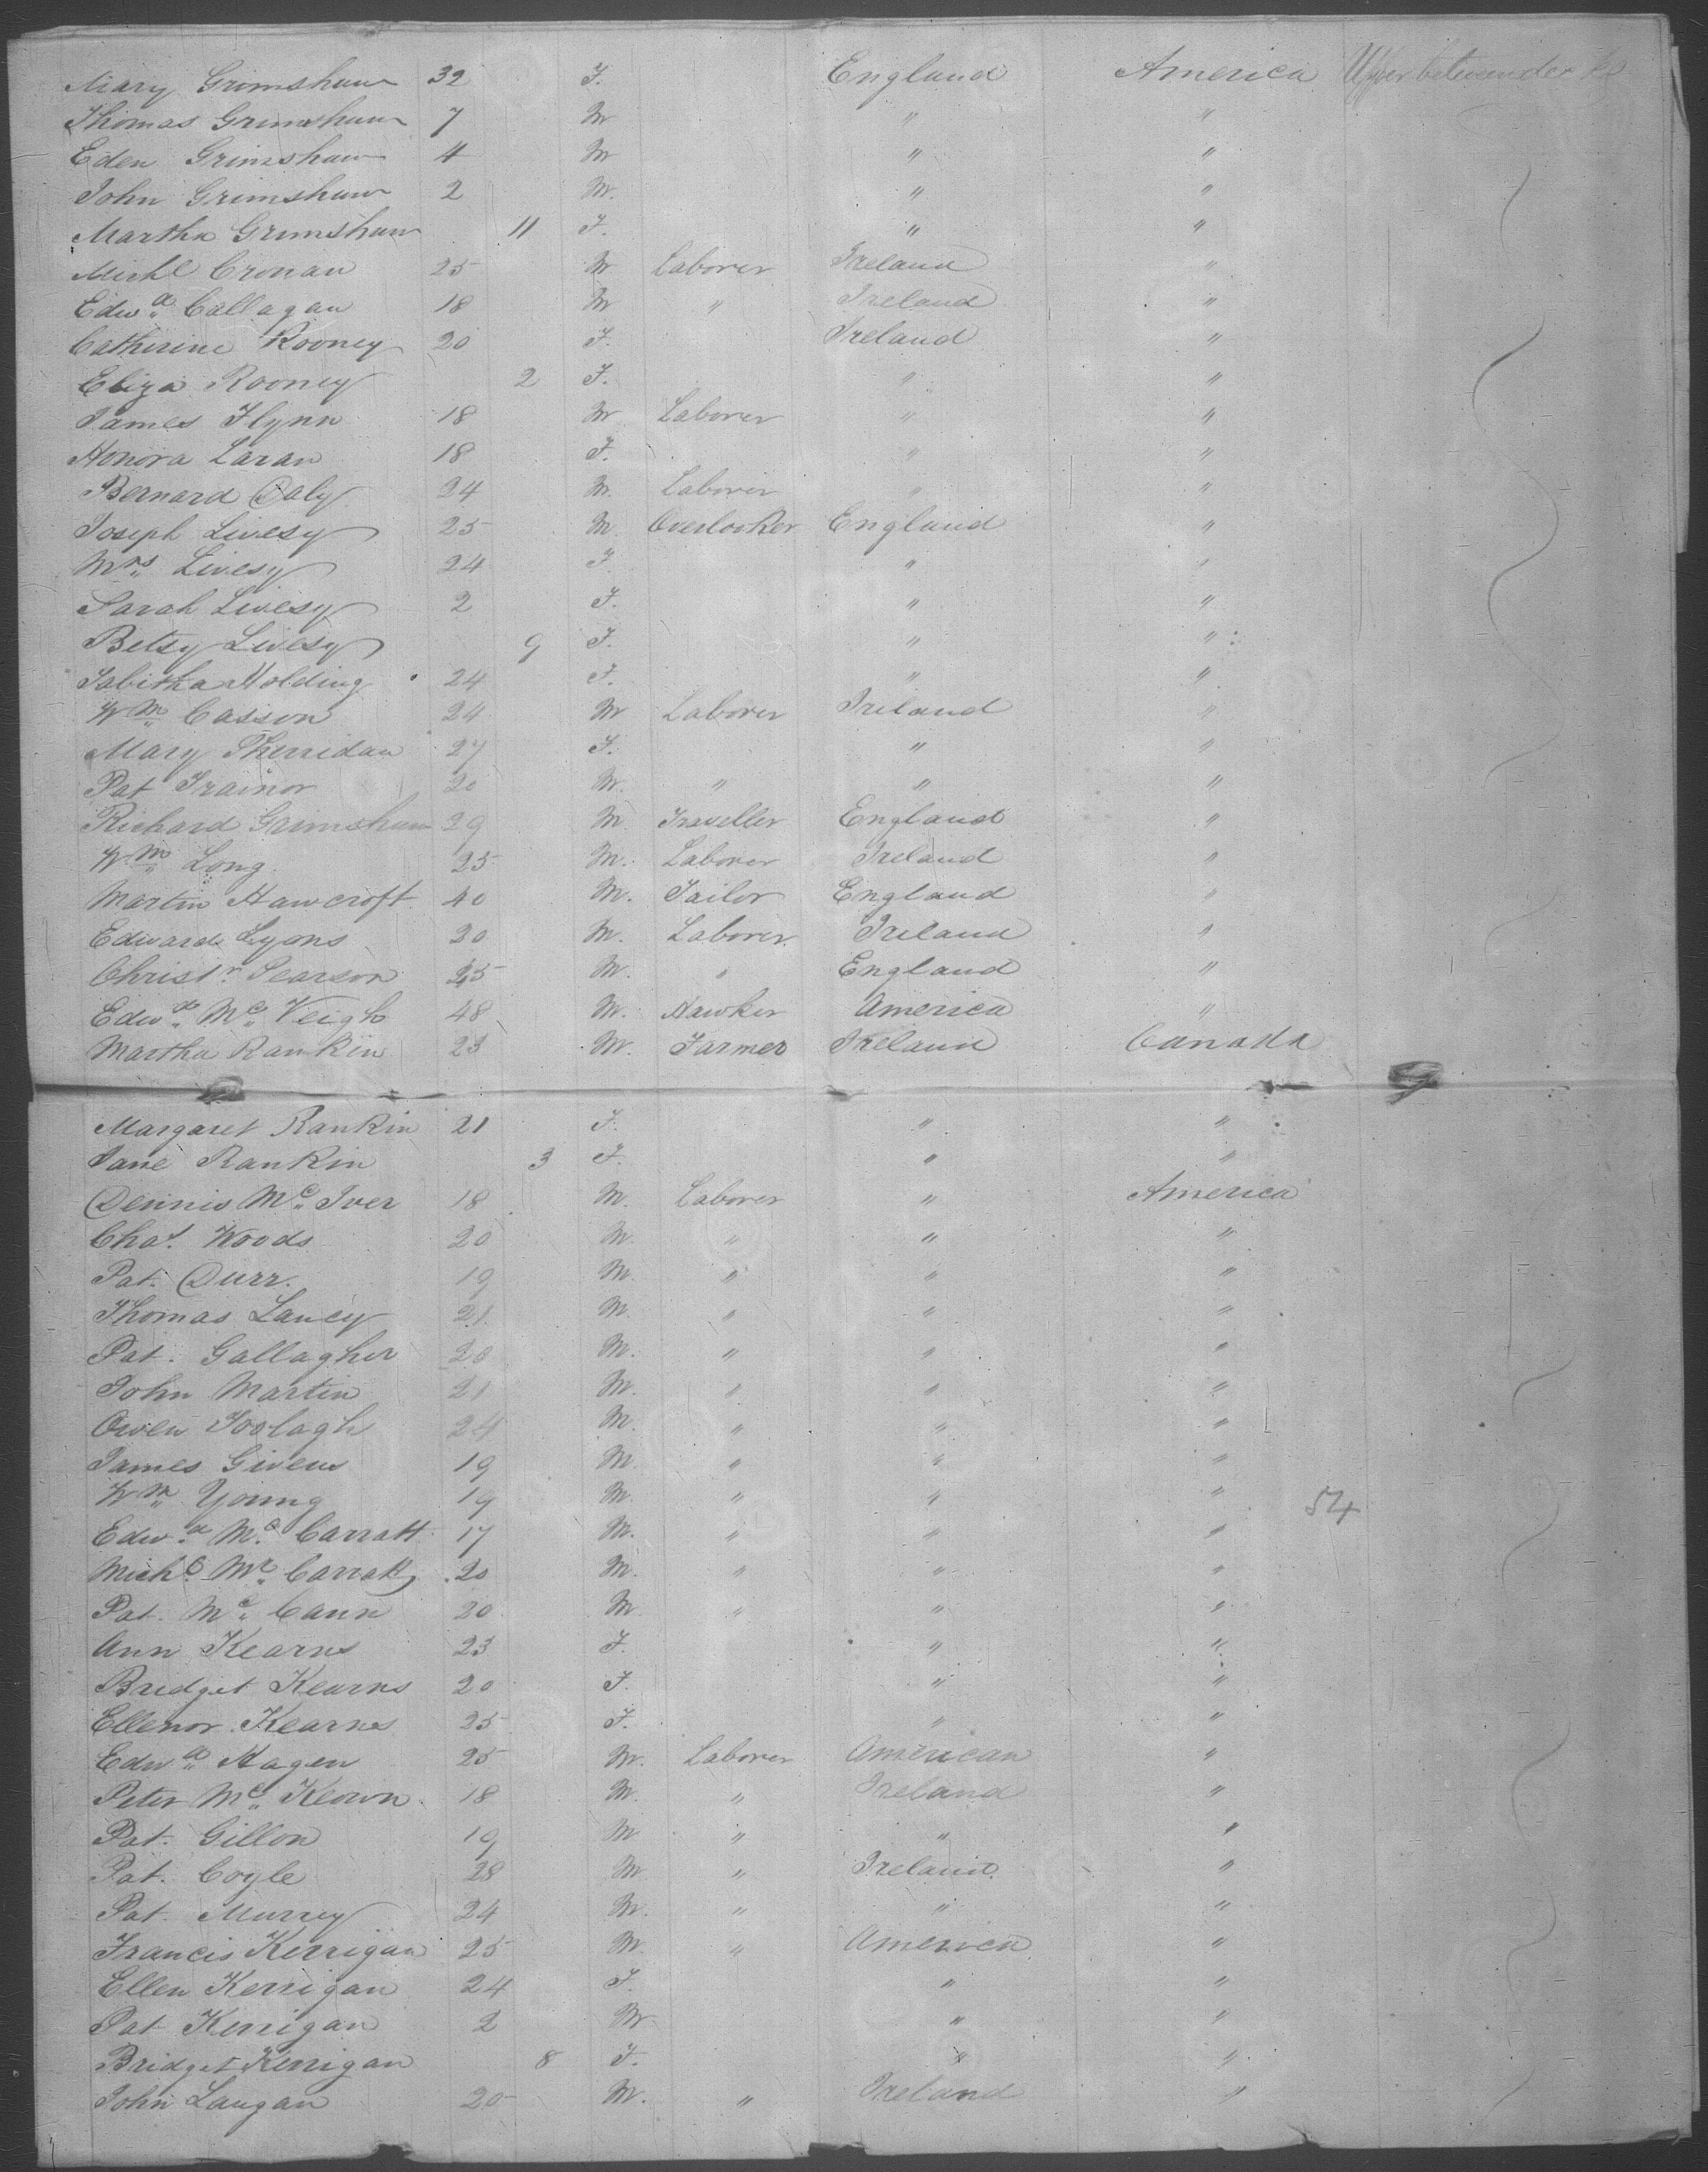 Mary Grimshaw 32 F. England America Upper between decks
Thomas Grimshaw 7 M " "
Eden Grimshaw 4 M " "
John Grimshaw 2 M. " "
Martha Grimshaw 11 F. " "
Michl Cronan 25 M Laborer Ireland "
Edwd Callagan 18 M " Ireland "
Catherine Rooney 20 F. Ireland "
Eliza Rooney 2 F. " "
James Flynn 18 M Laborer " "
Honora Laran 18 F. " "
Bernard Daly 24 M. Laborer " "
Joseph Livesy 25 M. Overlooker England "
Mrs Livesy 24 F " "
Sarah Livesy 2 F. " "
Betsy Livesy 9 F. " "
Tabitha Holding 24 F. " "
Wm Casson 24 M Laborer Ireland "
Mary Sherridan 27 F. " "
Pat Trainor 20 M. " " "
Richard Grimshaw 29 M. Traveller England "
Wm Long 25 M. Laborer Ireland "
Martin Hawcroft 40 M. Tailor England "
Edward Lyons 30 M. Laborer Ireland "
Christr Pearson 25 M. " England "
Edwd Mc Veigh 48 M. Hawker America "
Martha Rankin 23 M. Farmer Ireland Canada
Margaret Rankin 21 F. " "
Jane Rankin 3 F. " "
Dennis Mc Iver 18 M. Laborer " America
Chas. Woods 20 M. " " "
Pat. Durr. 19 M. " " "
Thomas Lancy 21 M " " "
Pat. Gallagher 20 M. " " "
John Martin 21 M. " " "
Owen Toolagh 24 M. " " "
James Givens 19 M. " " "
Wm Young 19 M. " " " 54
Edwd Mc Carratt 17 M. " " "
Michl Mc Carratt 20 M. " " "
Pat. Mc Cann 20 M " " "
Ann Kearns 23 F. " "
Bridget Kearns 20 F. " "
Ellenor Kearns 25 F. " "
Edwd Hagen 25 M. Laborer American "
Peter Mc Keown 18 M. " Ireland "
Pat. Gillon 19 M " " "
Pat. Coyle 28 M " Ireland "
Pat. Murrey 24 M. " " "
Francis Kerrigan 25 M. " America "
Ellen Kerrigan 24 F. " "
Pat Kerrigan 2 M " "
Bridget Kerrigan 8 F. " "
John Laugan 20 M. " Ireland "